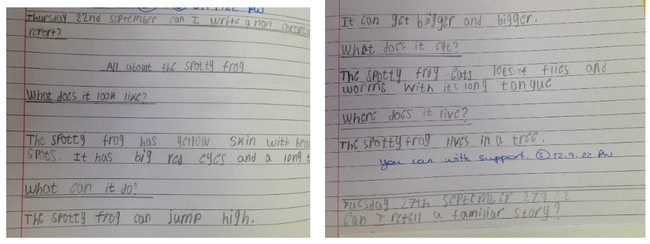 Thursday 22nd September can I write a non
report?
All about the spotty frog
What does it look like?
The spotty frog has yellow skin with
spots. It has big red eyes and a long
What can it do?
The spotty frog can jump high.
It can get bigger and bigger.
What does it eat?
The spotty frog eats lots of flies and
worms with its long tongue
Where does it live?
The spotty frog lives in a tree.
you can with support.
Tuesday 27th September
Can I retell a familiar story?